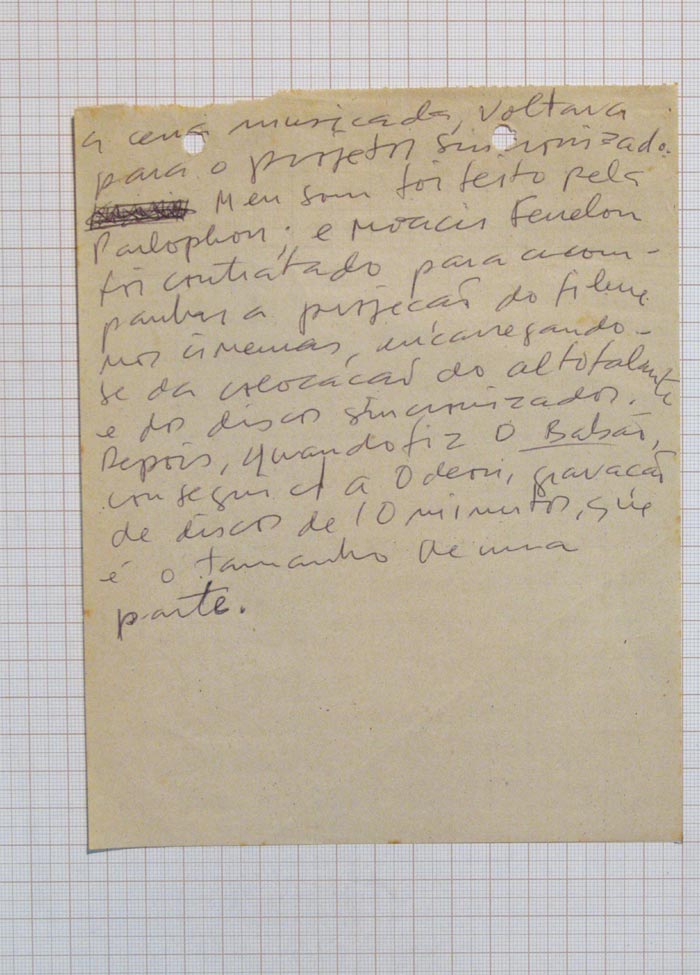 a cena musicada, voltava
para o projetor sincronizado.
Meu som foi feito pela
Parlophon; e Moacir Fenelon
foi contratado para acom-
panhar a projecão do filme
nos cinemas, encarregando-
se da colocacão do altofalante
e dos discos sincronizados.
Depois, quando fiz O Babão,
consegui c/ a Odeon, gravacão
de discos de 10 minutos, que
é o tamanho de uma
parte.